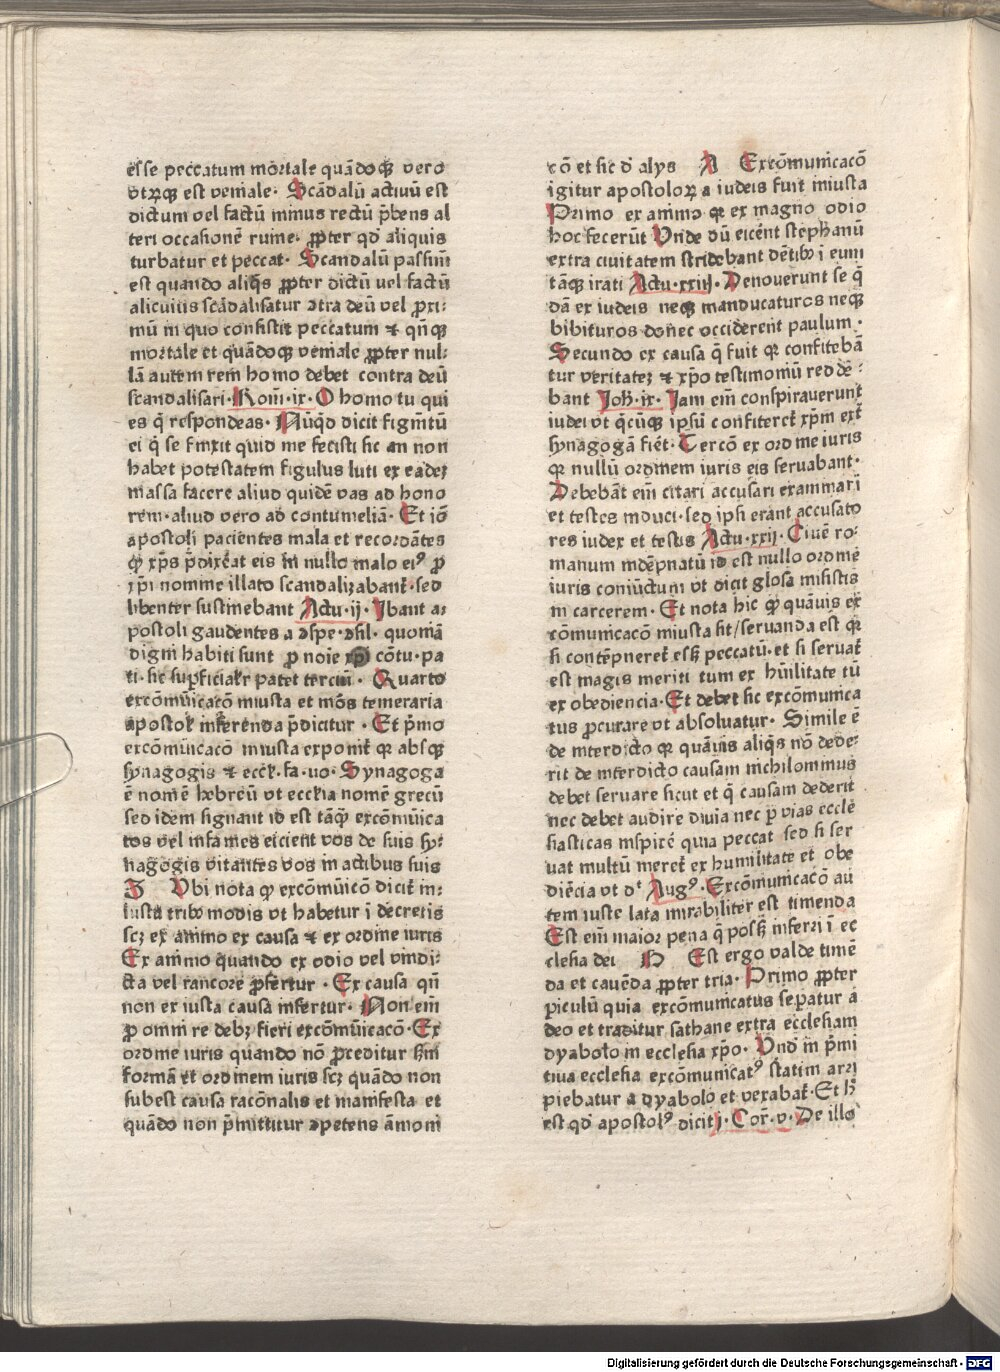 esse peccatum mortale quãdoqꝫ vero
vtrꝗ est veniale· Scãdalũ actiuũ est
dictum vel factũ minus rectũ p̃bens al
teri occasionẽ ruine· ꝓpter qd̓ aliquis
turbatur et peccat· Scandalũ passiuũ
est quando aliq̃s ꝓpter dictũ vel factũ
alicuius scãdalisatur ↄtra deũ vel ꝓxi:
mũ in quo consistit peccatum ⁊ qñqꝫ
mortale et quãdoqꝫ veniale ꝓpter nul:
lã autem rem homo debet contra deũ
scandalisari· Rom̃·ix· O homo tu qui
es q̃ respondeas· Nũq̃d dicit figm̃tũ
ei q̃ se finxit quid me fecisti sic an non
habet potestatem figulus luti ex eadeꝫ
massa facere aliud quidẽ vas ad hono
rem·aliud vero ad contumeliã· Et iõ
apostoli pacientes mala et recordãtes
ꝙ xp̃s p̃dixẽat eis in nullo malo eiꝰ ꝓ
xp̃i nomine illato scandalizabant̃·sed
libenter sustinebant Actu·ij· Ibant a:
postoli gaudentes a ↄspe·ↄsil· quoniã
digni habiti sunt ꝓ noie xp̃i cõtu·pa
ti·sic sup̱ficialr̃ patet terciũ· Quarto
excõmũicacõ iniusta et mõs temeraria
apostol̃ inferenda p̃dicitur · Et p̃mo
excõmũicacõ iniusta exponit̃ qꝛ absqꝫ
synagogis ⁊ eccl̃·fa·uo· Synagoga
ẽ nomẽ hebreũ vt ecclesia nomẽ grecũ
sed idem signant id est tãq̃ excõmũica
tos vel infames eicient vos de suis sy:
nagogis vitantes vos in actibus suis
Z Vbi nota ꝙ excõmũicõ dicit̃ in:
iusta tribꝰ modis vt habetur ĩ decretis
scꝫ ex animo ex causa ⁊ ex ordine iuris
Ex animo quando ex odio vel vindi:
cta vel rancore ꝓfertur · Ex causa qñ
non ex iusta causa infertur· Non eĩ
ꝓ omni re debꝫ fieri excõmũicacõ· Ex
ordine iuris quando nõ ꝓceditur ẜm
formã et ordinem iuris scꝫ quãdo non
subest causa racõnalis et manifesta et
quãdo non p̃mittitur ↄpetens ãmoni
cõ et sic d̓ alijs A Excõmunicacõ
igitur apostoloꝝ a iudeis fuit iniusta
Primo ex animo qꝛ ex magno odio
hoc fecerũt Vnde dũ eicẽnt stephanũ
extra ciuitatem stridebant dẽtibꝰ ĩ eum
tãqꝫ irati Actu·xxiij· Deuouerunt se q̃
dã ex iudeis neqꝫ manducaturos neqꝫ
bibituros donec occiderent paulum·
Secundo ex causa q̃ fuit qꝛ confitebã
tur veritateꝫ ⁊ xp̃o testimoniũ redde:
bant Joh̃·ix· Iam eĩ conspirauerunt
iudei vt q̃cũqꝫ ipsũ confiteret̃ xp̃m ext̃
synagogã fiẽt· Tercõ ex ordine iuris
qꝛ nullũ ordinem iuris eis seruabant·
Debebãt eĩ citari accusari examinari
et testes induci·sed ipsi erãnt accusato
res iudex et testis Actu·xxij· Ciuẽ ro:
manum indẽpnatũ id est nullo ordine
iuris conũictum vt dicit glosa misistis
in carcerem· Et nota hic ꝙ quãuis ex
cõmunicacõ iniusta sit/seruanda est qꝛ
si contẽpneret̃ esꝫ peccatũ·et si seruat̃
est magis meriti tum ex hũilitate tũ
ex obediencia·Et debet sic excõmunica
tus ꝓcurare vt absoluatur· Simile ẽ
de interdicto qꝛ quãuis aliq̃s nõ dede:
rit de interdicto causam nichilominus
debet seruare sicut et q̃ causam dederit
nec debet audire diuia nec p̱ vias ecclẽ
siasticas inspirẽ quia peccat sed si ser
uat multũ meret̃ ex humilitate et obe
diẽcia vt d̓t Augꝰ· Excõmunicacõ au
tem iuste lata mirabiliter est timenda
Est eĩ maior pena q̃ posꝫ inferri ĩ ec
clesia dei B Est ergo valde timẽ
da et cauẽda ꝓpter tria· Primo ꝓpter
piculũ quia excõmunicatus sepatur a
deo et traditur sathane extra ecclesiam
dyabolo in ecclesia xp̃o· Vnd̓ in p̃mi
tiua ecclesia excõmunicatꝰ statim arri
piebatur a dyabolo et vexabat̃·Et h̃
est qd̓ apostolꝰ dicit j· Cor̃·v· De illo
Digitalisierung gefördert durch die Deutsche Forschungsgemeinschaft - DFG